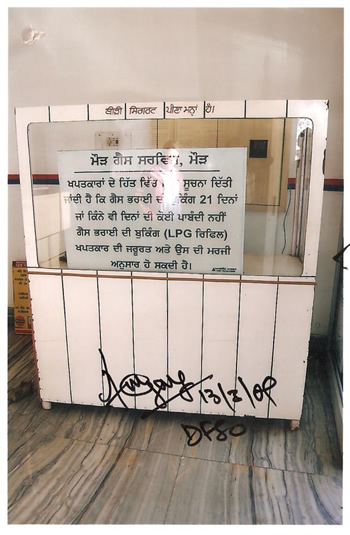 ਬੀੜੀ ਸਿਗਰਟ ਪੀਣਾ ਮਨ੍ਹਾਂ ਹੈ।
ਮੌੜ ਗੈਸ ਸਰਵਿਸ, ਮੌੜ
ਖਪਤਕਾਰਾਂ ਦੇ ਹਿੱਤ ਵਿੱਚ ਸੂਚਨਾ ਦਿੱਤੀ
ਜਾਂਦੀ ਹੈ ਕਿ ਗੈਸ ਭਰਾਈ ਦੀ ਬੁਕਿੰਗ 21 ਦਿਨਾਂ
ਜਾਂ ਕਿੰਨੇ ਵੀ ਦਿਨਾਂ ਦੀ ਕੋਈ ਪਾਬੰਦੀ ਨਹੀਂ
ਗੈਸ ਭਰਾਈ ਦੀ ਬੁਕਿੰਗ (LPG ਰਿਫਿਲ)
ਖਪਤਕਾਰ ਦੀ ਜਰੂਰਤ ਅਤੇ ਉਸ ਦੀ ਮਰਜੀ
ਅਨੁਸਾਰ ਹੋ ਸਕਦੀ ਹੈ।
13/3/09
DFSO